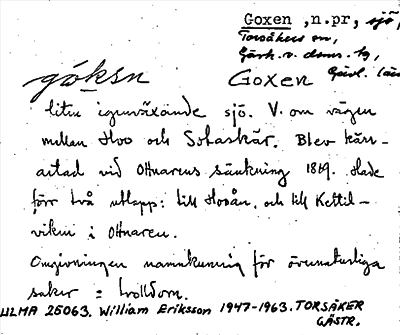 Goxen, n.pr, sjö,
Torsåkers sn,
Gästr. v. doms. hg,
Gävl. län
góksn Goxen
liten igenväxande sjö. V. om vägen
mellan Hoo och Solaskär. Blev kärr-
artad vid Ottnarens sänkning 1869. Hade
förr två utlopp: till Hoån, och till Kettil-
viken i Ottnaren.
Omgivningen namnkunnig för övernaturliga
saker = trolldom.
ULMA 25063. William Eriksson 1947-1963. TORSÅKER
GÄSTR.